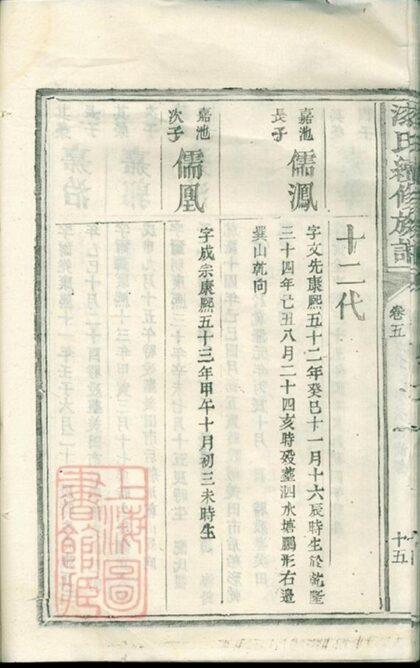 漆氏續修族譜
卷五
十五
十二代
嘉池
長子
儒鳳
字文先康熙五十二年癸巳十一月十六辰時生於乾隆
三十四年己丑八月二十四亥時歿葬泗水塘鵬形右邉
巽山乾向
嘉池
次子
儒凰
字成宗康熙五十三年甲午十月初三未時生
上海圖
書館藏